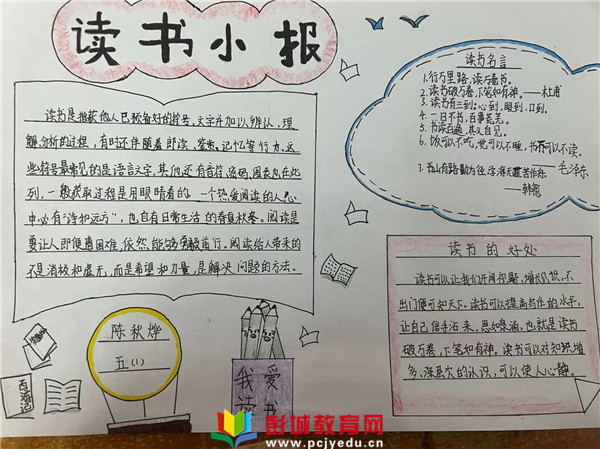 读书小报
读书是指获他人已预备好的符号、文字并加以辨认、理
解、分析的过程，有时还伴随着朗读、鉴赏、记忆等行为。这
些符号最常见的是语言文字，其他还有音符、密码、图表也在此
列，一般获取过程是用眼睛看的。一个热爱阅读的人，心
中必有“诗和远方”，也自有日常生活的春夏秋冬。阅读是
要让人即便遇困难，依然能够勇毅前行。阅读给人带来的
不是消极和虚无，而是希望和力量，是解决问题的方法。
读书名言
1.行万里路，读万卷书。
2.读书破万卷，下笔如有神。——杜甫
3.读书有三到：心到，眼到，口到。
4.一日不书，百事荒芜。
5.书读百遍，其义自见。
6.饭可以不吃，觉可以不睡，书不可以不读。
——毛泽东
7.书山有路勤为径，学海无涯苦作舟
——韩愈
读书的好处
读书可以让我们开阔视野，增长见识，不
出门便可知天下。读书可以提高写作的水平，
让自己信手沾来，思如泉涌，也就是读书
破万卷，下笔如有神。读书可以对知识增
多、深层次的认识，可以使人心静。
陈秋烨
五（1）
我爱
读书
西游记
彭城教育网
www.pcjyedu.cn